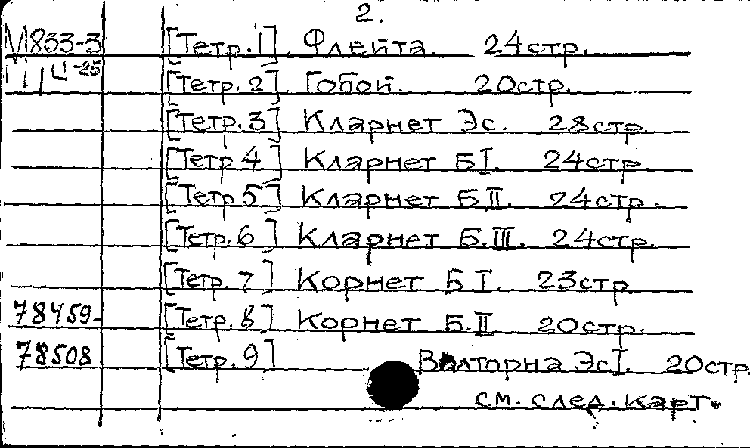 2.
М833-3 [Тетр.1] Флейта. 24стр.
Ц-25 [Тетр.2] Гобой. 20стр.
[Тетр.3] Кларнет Эс. 28стр.
[Тетр 4] Кларнет Б I. 24стр
[Тетр 5] Кларнет Б.II. 24стр.
[Тетр.6] Кларнет Б.III. 24стр.
[Тетр.7] Корнет Б I. 23стр
78459- [Тетр.8] Корнет Б.II 20стр.
78508 [Тетр.9] Валторна Эс I. 20стр.
см. след. карт.